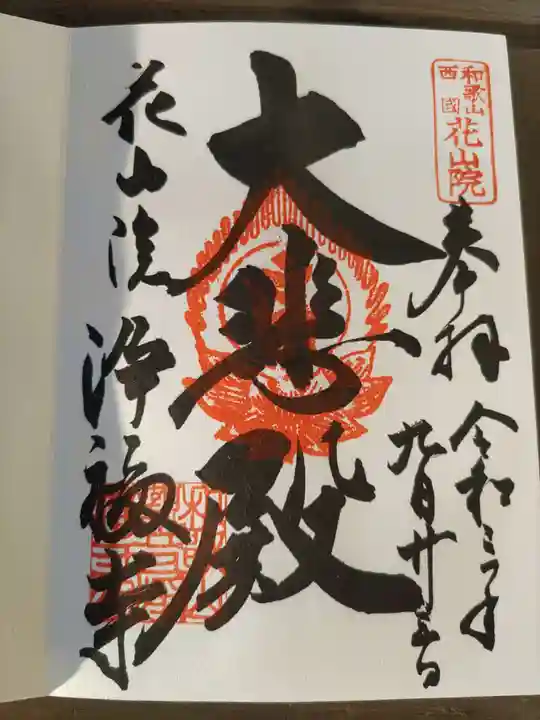 和歌山
西國
花山院
奉拝
令和三年
九月廿三日
大悲殿
花山院
浄福寺